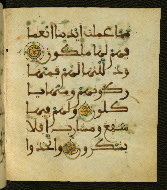 مما عملت ايدينا انعما
فهم لها ملكون
وذللنها لهم فمنها
ركوبهم ومنها يا
كلون ولهم فيها
منفع ومشارب افلا
يشكرون واتخذوا